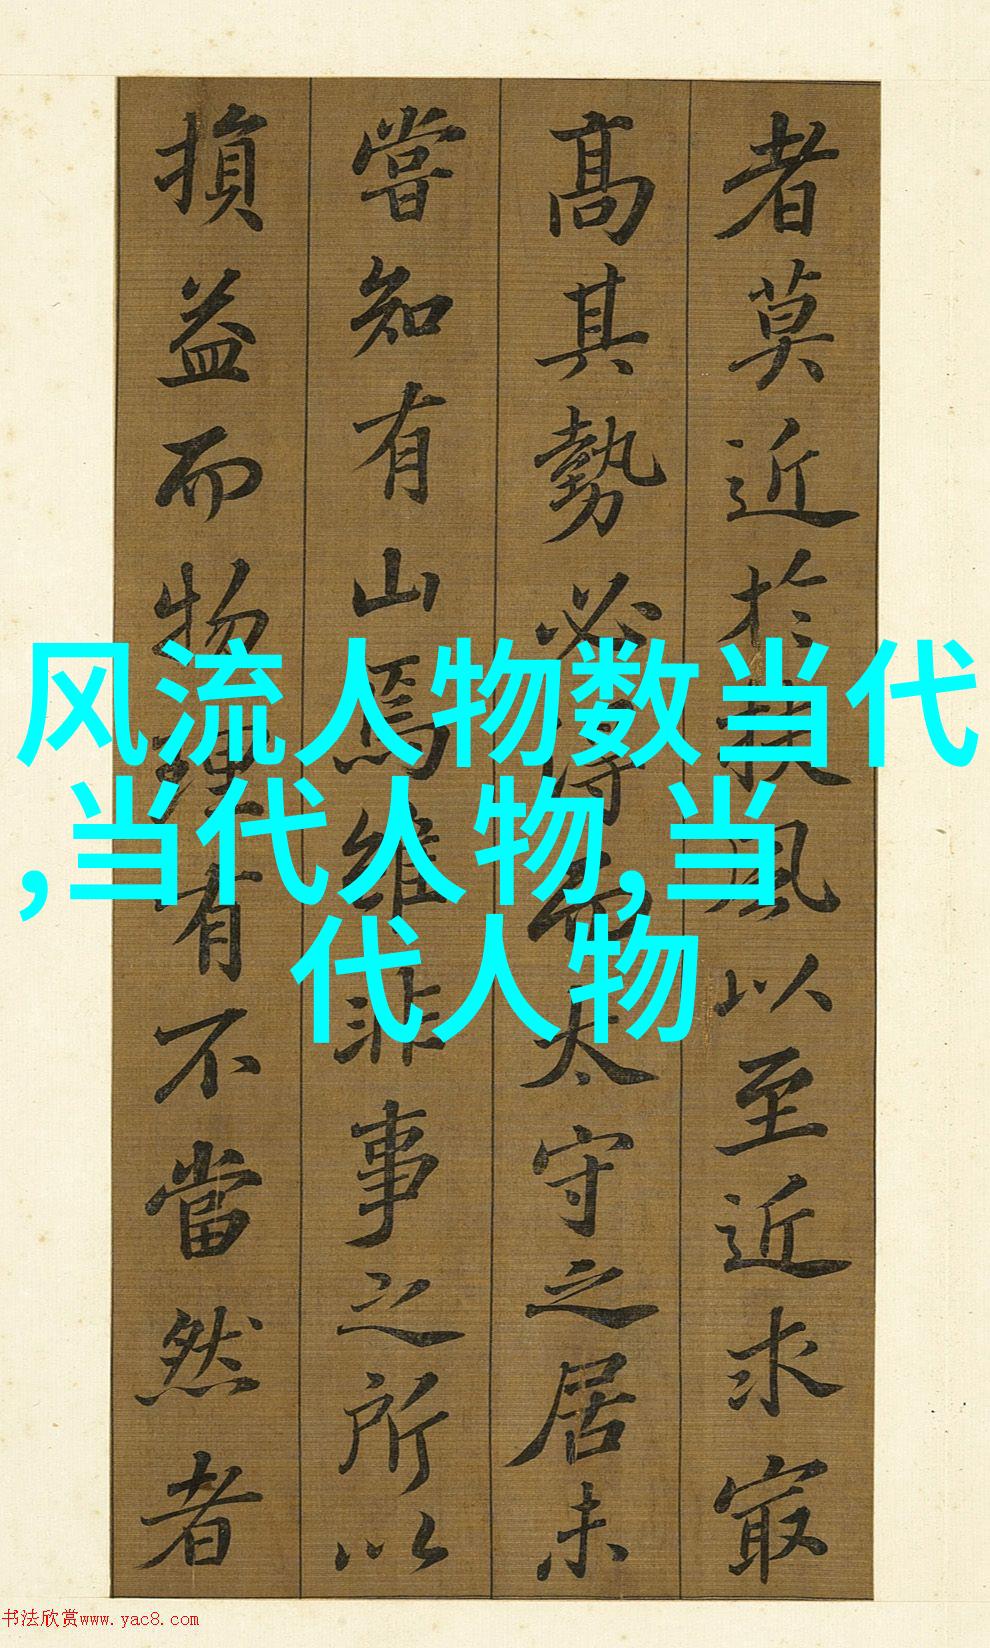 者莫近於扶風以至近求冣
髙其勢必得而太守之居未
嘗知有山焉維非事之所以
損益而物理有不當然者
风流人物数当代
,当代人物,当
代人物
书法欣赏www.yac8.com